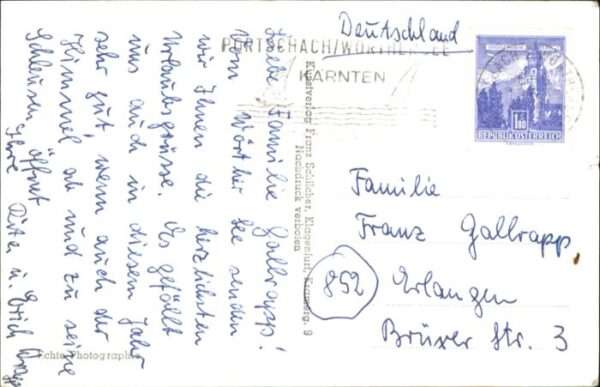 Deutschland
PÖRTSCHACH/WÖRTHERSEE
KÄRNTEN
1.80
REPUBLIK ÖSTERREICH
Liebe Familie Gallrapp!
Vom Wörther See senden
wir Ihnen die herzlichsten
Urlaubsgrüsse. Es gefällt
uns auch in diesem Jahr
sehr gut, wenn auch der
Himmel ab und zu seine
Schleusen öffnet
Ihre u. Erich
Kunstverlag Franz Schilcher, Klagenfurt, 9
Nachdruck verboten
Familie
Franz Gallrapp
852
Erlangen
Brüxer Str. 3
Echte Photographie